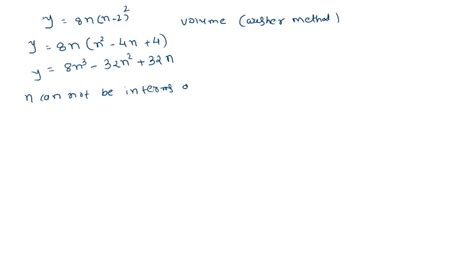 y = 8n(n-2)² volume (washer method)
y = 8n (n² - 4n + 4)
y = 8n³ - 32n² + 32n
n can not be interms o